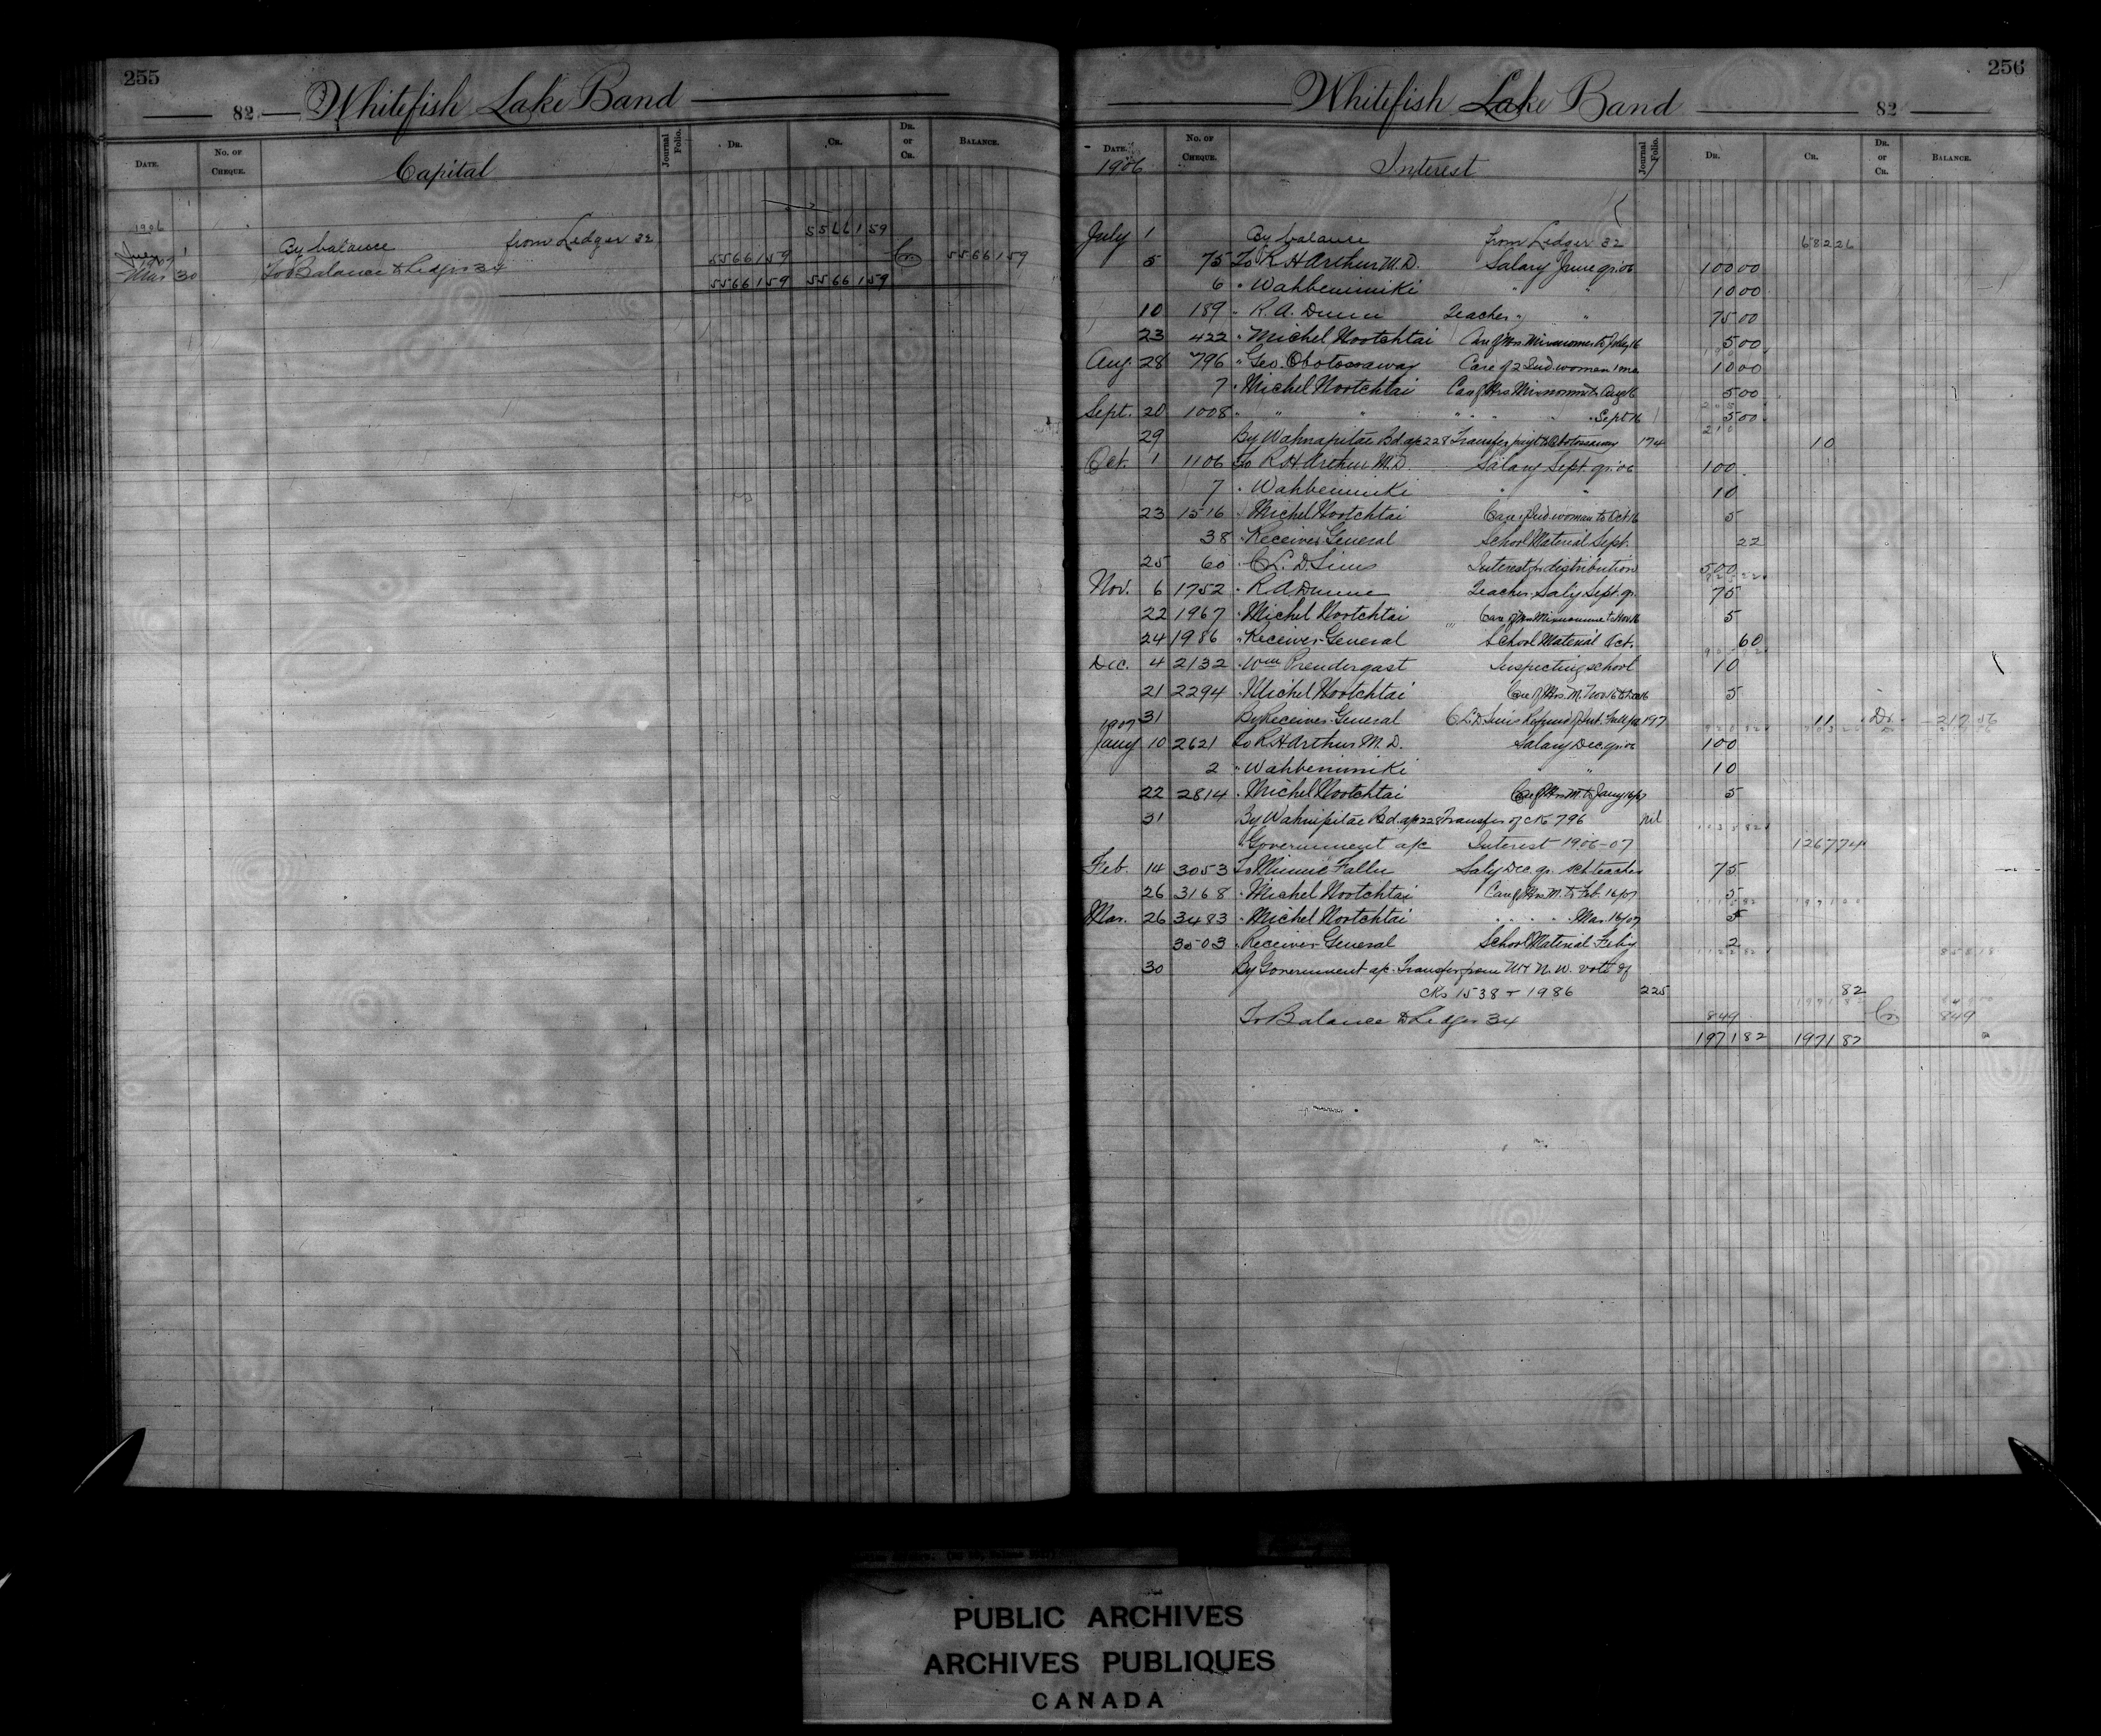 255
82 Whitefish Lake Band
DATE. No. OF CHEQUE. Capital Journal Folio. DR. CR. DR. or CR. BALANCE.
1906
July 1 By balance from Ledger 32 55661 59
1907
Mar 30 To Balance to Ledger 34 55661 59 Cr 55661 59
55661 59 55661 59
256
Whitefish Lake Band 82
DATE. No. OF CHEQUE. Interest Journal Folio. DR. CR. DR. or CR. BALANCE.
1906
July 1 By balance from Ledger 32 682 26
5 75 To R H Arthur M.D. Salary June qr. 06 100 00
6 " Wahbenimiki " " 10 00
10 189 " R. A. Dunn Teacher " " 75 00
23 422 " Michel Nootchtai Care of Mrs to July 16 5 00
Aug. 28 796 " Geo. Obotossaway Care of 2 Ind. woman 1 mo 10 00
7 " Michel Nootchtai Care of Mrs to Aug 16 5 00
Sept. 20 1008 " " " " " " " Sept 16 5 00
29 By Wahnapitae Bd. a/c 228 Transfer to Obotossaway 174 10
Oct. 1 1106 To R H Arthur M.D. Salary Sept. qr. 06 100
7 " Wahbenimiki " " 10
23 1516 " Michel Nootchtai Care of Ind. woman to Oct 16 5
38 " Receiver General School Material Sept. 22
25 60 " C. L. D. Sims Interest for distribution 500
Nov. 6 1752 " R A Dunn Teacher Sal'y Sept. qr. 75
22 1967 " Michel Nootchtai Care of Mrs to Nov 16 5
24 1986 " Receiver General School Material Oct. 60
Dec. 4 2132 " Wm Prendergast Inspecting school 10
21 2294 " Michel Nootchtai Care of Mrs. M. Nov 16 to Dec 16 5
31 By Receiver General C L D Sims Refund of Int. 197 11 Dr. 217 56
1907
Jany 10 2621 To R H Arthur M.D. Salary Dec qr. 06 100
2 " Wahbenimiki " " 10
22 2814 " Michel Nootchtai Care of Mrs M. to Jany 16/07 5
31 By Wahnipitae Bd. a/c 228 Transfer of ck 796 nil
" Government a/c Interest 1906-07 1267 74
Feb. 14 3053 To Minnie Fallu Sal'y Dec. qr. sch teacher 75
26 3168 " Michel Nootchtai Care of Mrs. M. to Feb. 16/07 5
Mar. 26 3483 " Michel Nootchtai " " " " Mar. 16/07 5
3503 " Receiver General School Material Feby 2
30 By Government a/c Transfer from N. W. vote of
cks 1538 + 1986 225 82
To Balance to Ledger 34 849 Cr 849
1971 82 1971 82
PUBLIC ARCHIVES
ARCHIVES PUBLIQUES
CANADA